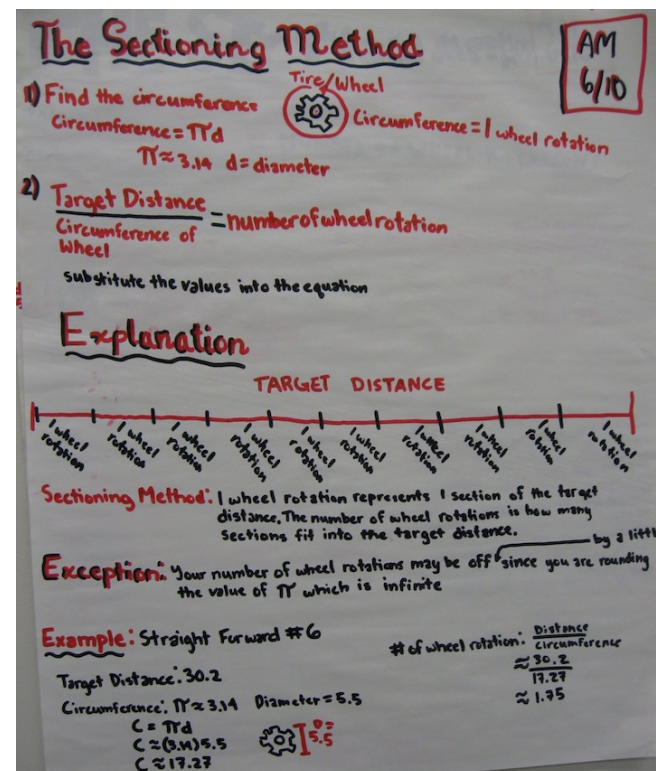 The Sectioning Method
AM
6/10
1) Find the circumference
Circumference = πd
π ≈ 3.14 d = diameter
Tire/Wheel
Circumference = 1 wheel rotation
2) Target Distance
Circumference of
Wheel
= number of wheel rotation
substitute the values into the equation
Explanation
TARGET DISTANCE
1 wheel rotation
1 wheel rotation
1 wheel rotation
1 wheel rotation
1 wheel rotation
1 wheel rotation
1 wheel rotation
1 wheel rotation
1 wheel rotation
1 wheel rotation
Sectioning Method: 1 wheel rotation represents 1 section of the target
distance. The number of wheel rotations is how many
sections fit into the target distance.
by a littl
Exception: Your number of wheel rotations may be off since you are rounding
the value of π which is infinite
Example: Straight Forward #6
Target Distance: 30.2
Circumference: π ≈ 3.14 Diameter = 5.5
C = πd
C ≈ (3.14) 5.5
C ≈ 17.27
D =
5.5
# of wheel rotation: Distance
circumference
≈ 30.2
17.27
≈ 1.75